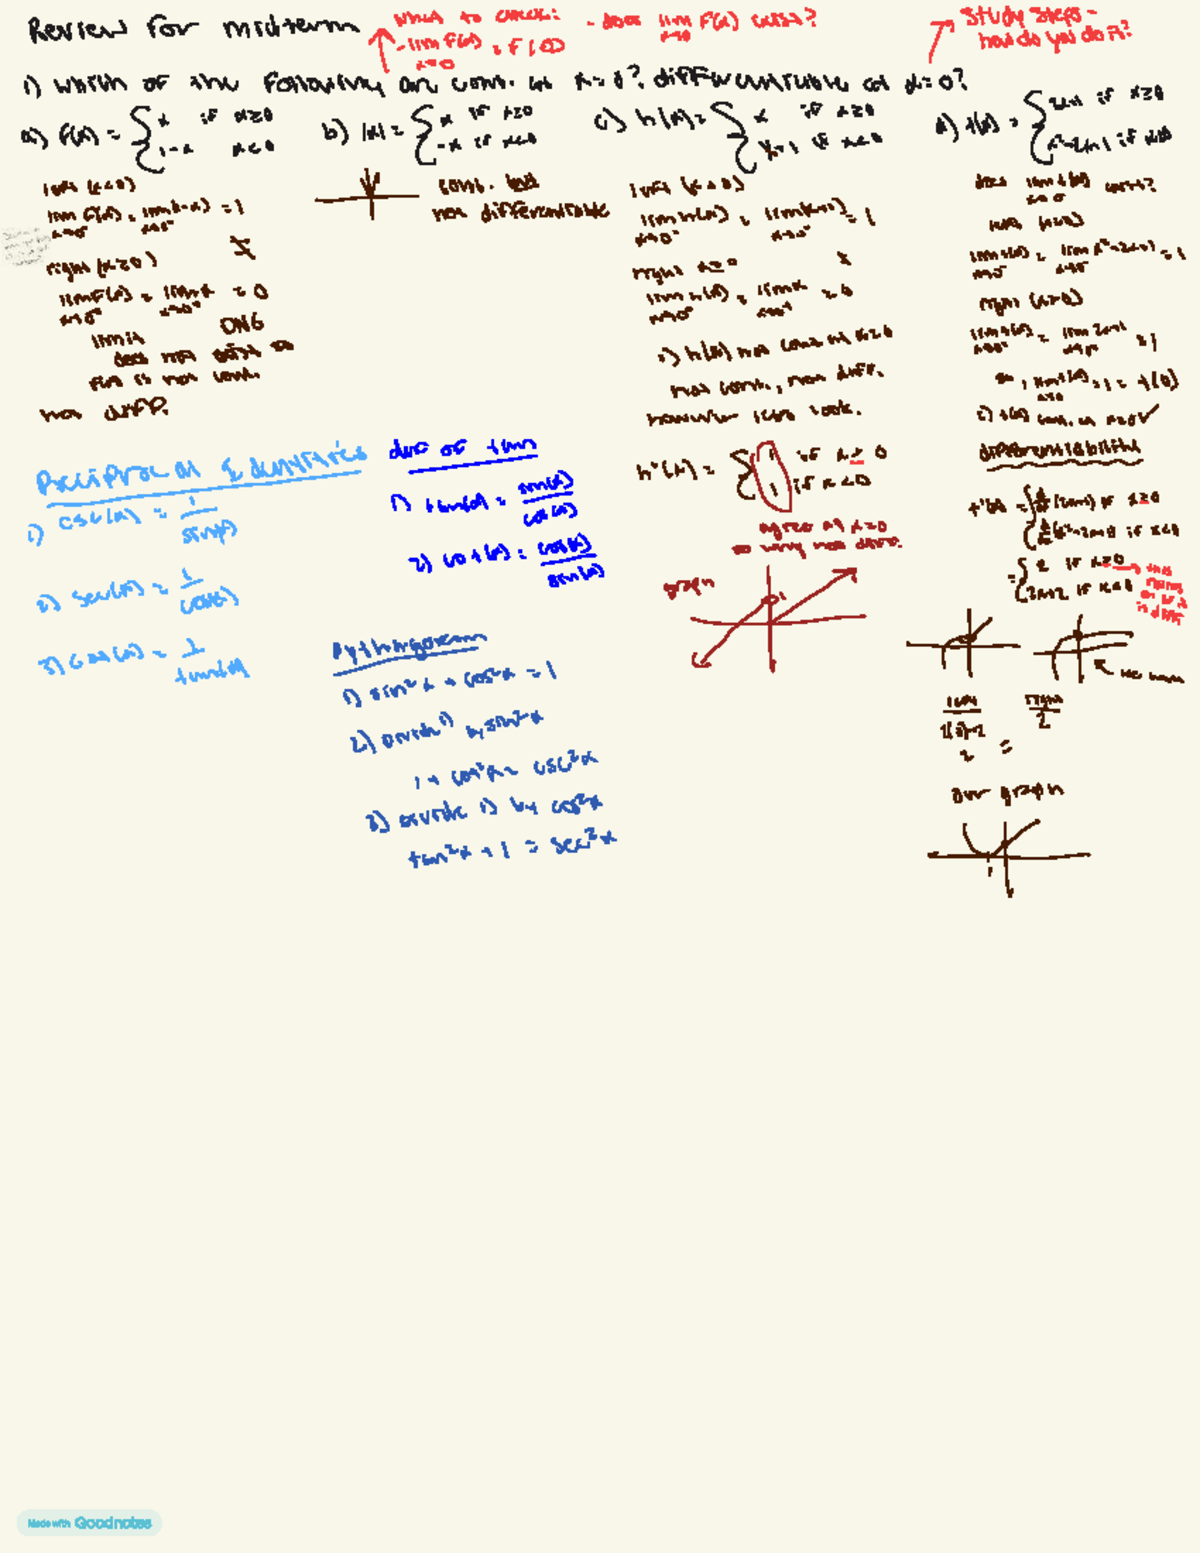 Review for midterm
what to check:
- lim f(x) = f(0)
x→0
- does lim f(x) exist?
x→0
Study Steps -
how do you do it?
1) which of the following are cont. at x=0? differentiable at x=0?
a) f(x) = { x if x≥0
1-x x<0
left (x<0)
lim f(x) = lim (1-x) = 1
x→0⁻ x→0⁻
≠
right (x≥0)
lim f(x) = lim x = 0
x→0⁺ x→0⁺
limit DNE
does not exist so
f(x) is not cont.
not diff.
b) |x| = { x if x≥0
-x if x<0
cont. but
not differentiable
c) h(x) = { x if x≥0
x+1 if x<0
left (x<0)
lim h(x) = lim (x+1) = 1
x→0⁻ x→0⁻
≠
right x≥0
lim h(x) = lim x = 0
x→0⁺ x→0⁺
h(x) not cont at x=0
not cont., not diff.
however lets look.
h'(x) = { 1 if x > 0
1 if x<0
agree at x=0
so why not diff.
graph
1
d) t(x) = { 2x+1 if x≥0
x²+2x+1 if x<0
does lim t(x) exist?
x→0
left (x<0)
lim t(x) = lim x²+2x+1 = 1
x→0⁻ x→0⁻
right (x≥0)
lim t(x) = lim 2x+1 = 1
x→0⁺ x→0⁺
so, lim t(x) = 1 = t(0)
x→0
t(x) cont. at x=0 ✓
differentiability
t'(x) = { d/dx (2x+1) if x≥0
d/dx (x²+2x+1) if x<0
= { 2 if x≥0
2x+2 if x<0
left right
2(0)+2 2
2 =
our graph
Reciprocal Identities
1) csc(x) = 1/sin(x)
2) sec(x) = 1/cos(x)
3) cot(x) = 1/tan(x)
def of tan
1) tan(x) = sin(x)/cos(x)
2) cot(x) = cos(x)/sin(x)
Pythagorean
1) sin²x + cos²x = 1
2) divide 1) by sin²x
1 + cot²x = csc²x
3) divide 1) by cos²x
tan²x + 1 = sec²x
Made with Goodnotes